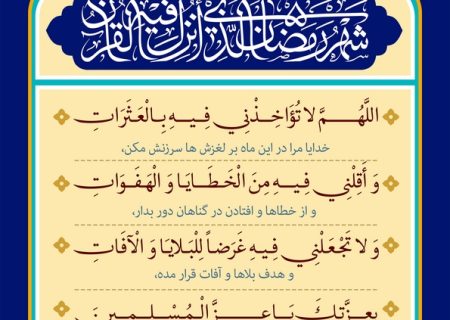 شهر رمضان الذي أنزل فيه القرآن
اللَّهُمَّ لا تُؤَاخِذْنِي فِيهِ بِالْعَثَرَاتِ
خدایا مرا در این ماه بر لغزش ها سرزنش مکن،
وَ أَقِلْنِي فِيهِ مِنَ الْخَطَايَا وَ الْهَفَوَاتِ
و از خطاها و افتادن در گناهان دور بدار،
وَ لا تَجْعَلْنِي فِيهِ غَرَضاً لِلْبَلايَا وَ الْآفَاتِ
و هدف بلاها و آفات قرار مده،
بِعِزَّتِكَ يَا عِزَّ الْمُسْلِمِينَ